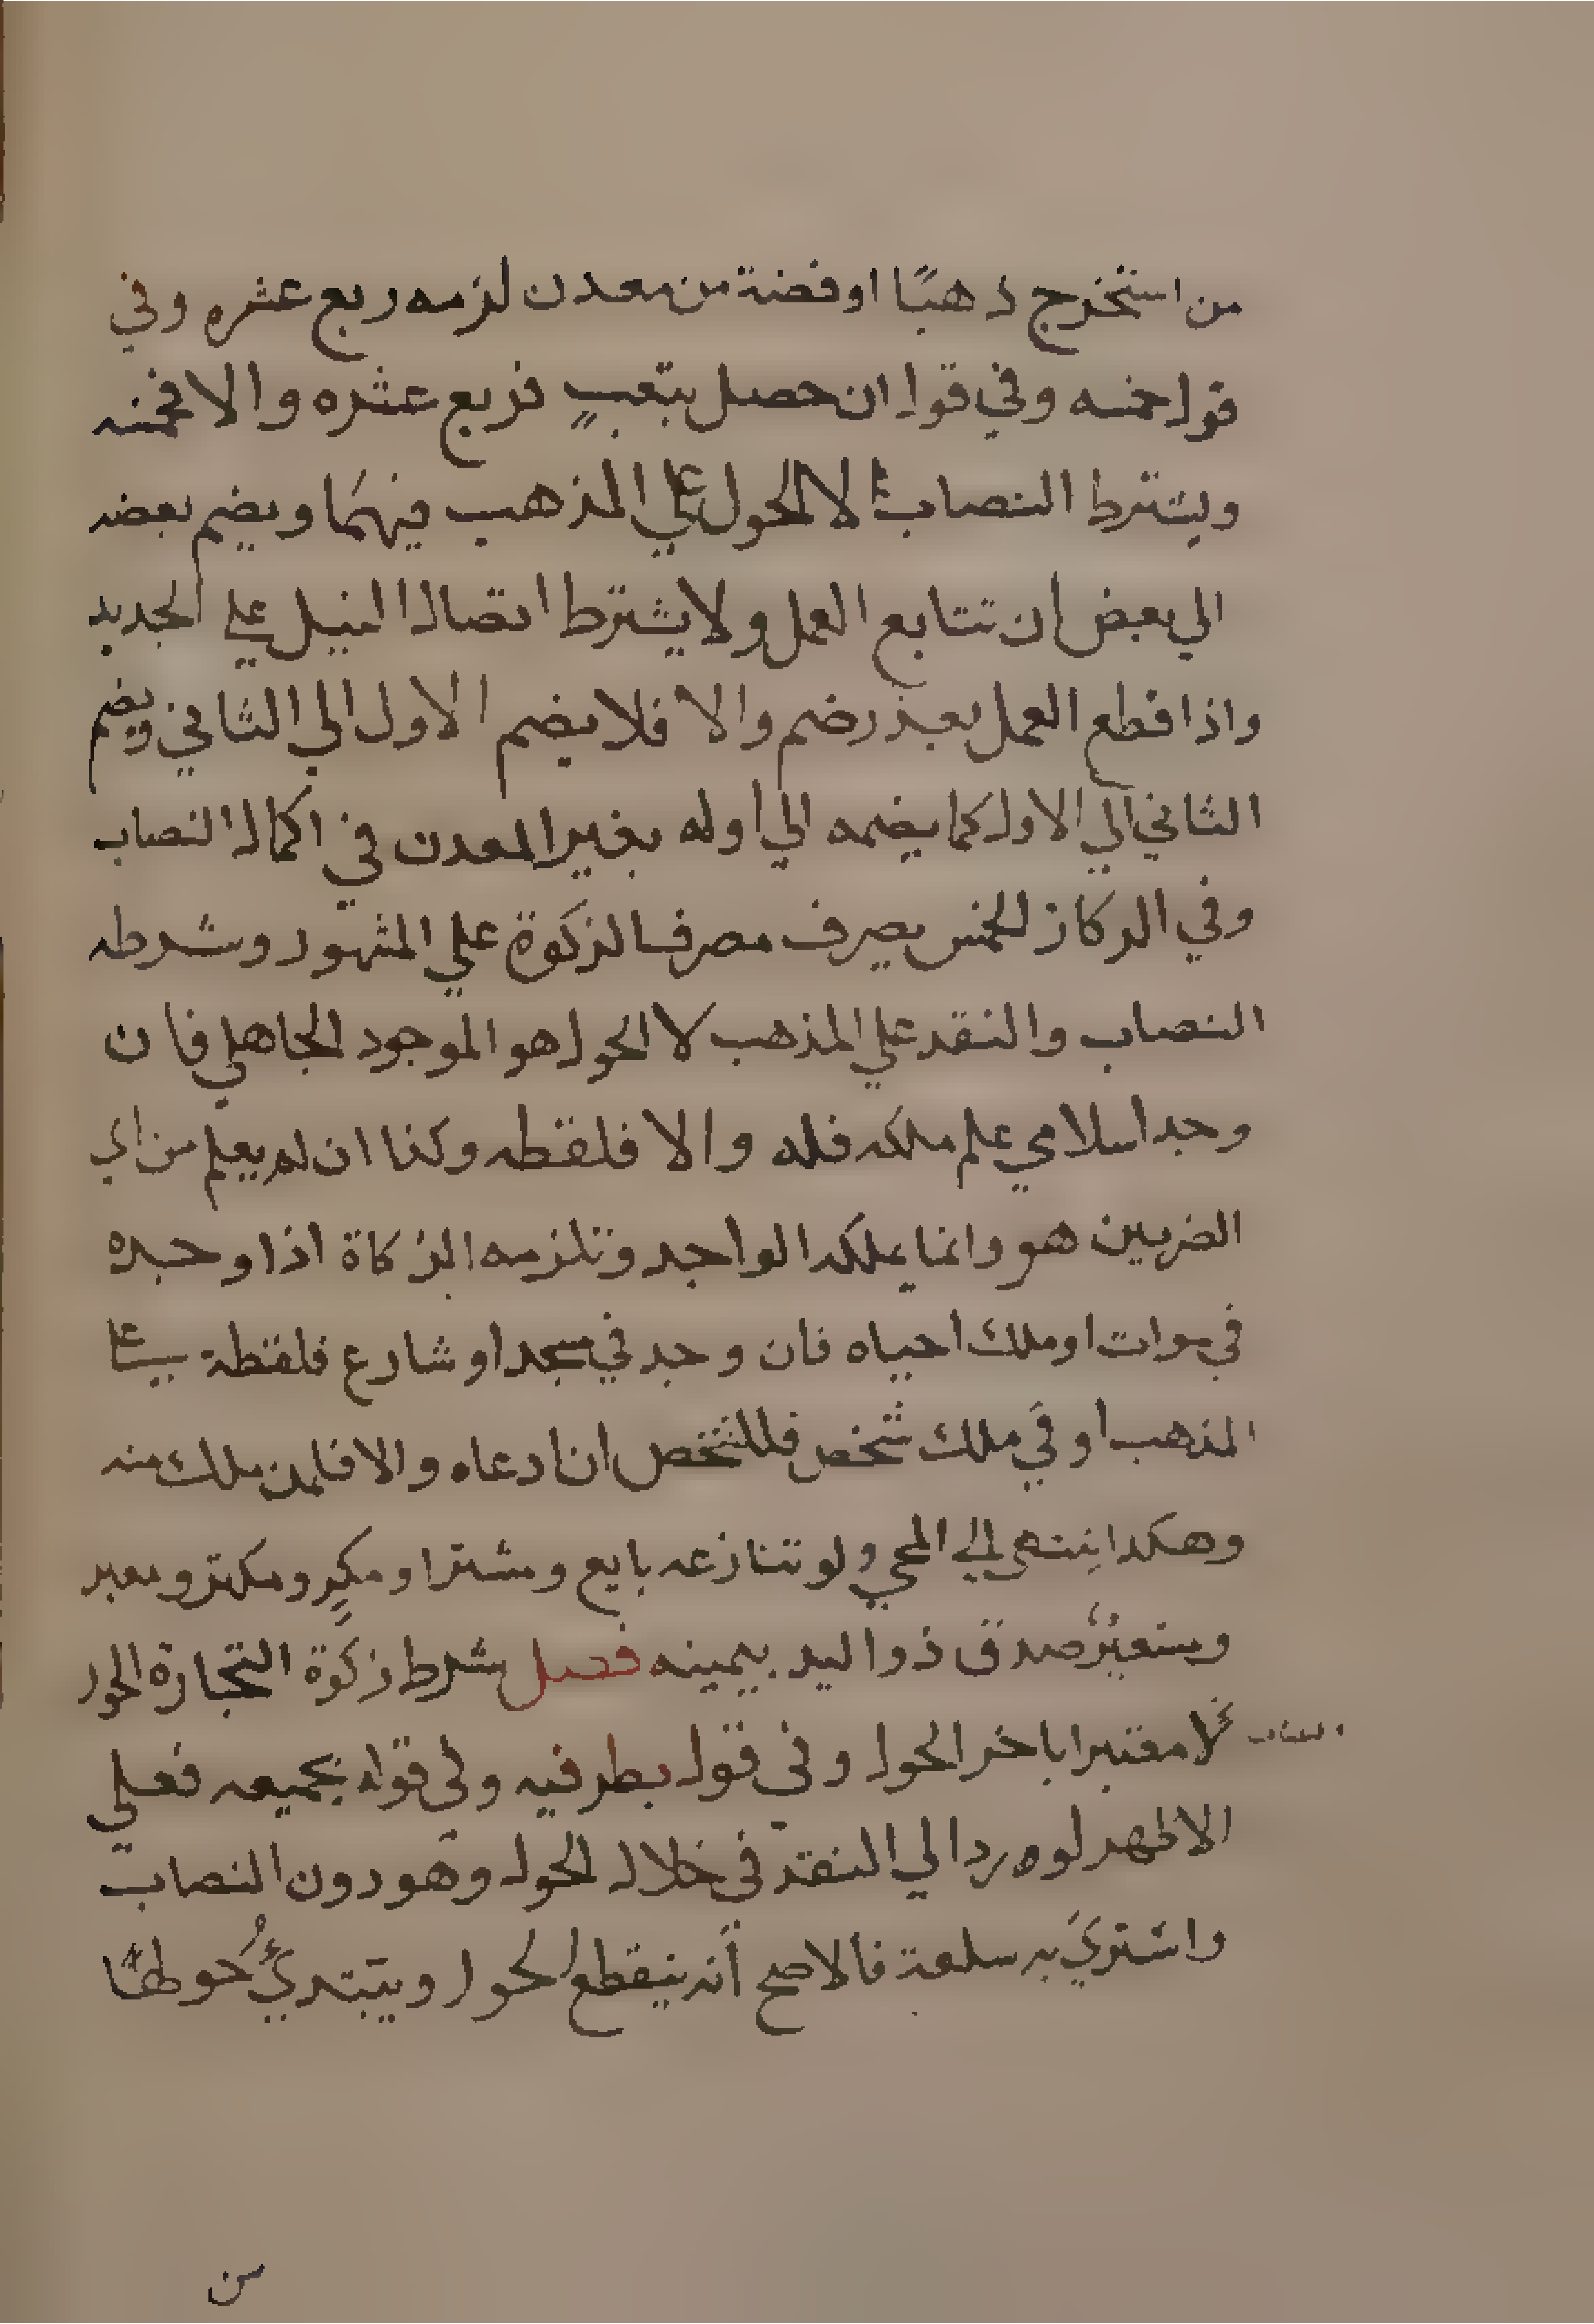 من استخرج ذهبًا او فضة من معدن لزمه ربع عشره وفي
قول خمسه وفي قول ان حصل بتعبٍ فربع عشره والا فخمسه
ويشترط النصاب لا الحول علي المذهب فيهما ويضم بعضه
الي بعض ان تتابع العمل ولا يشترط اتصال النيل علي الجديد
واذا قطع العمل بعذر ضم والا فلا يضم الاول الي الثاني ويضم
الثاني الي الاول كما يضمه الي اوله بغير المعدن في اكمال النصاب
وفي الركاز الخمس يصرف مصرف الزكوة علي المشهور وشرطه
النصاب والنقد علي المذهب لا الحول هو الموجود الجاهلي فان
وجد اسلامي علم ملكه فله والا فلقطه وكذا ان لم يعلم من اي
الضربين هو وانما يملكه الواجد وتلزمه الزكاة اذا وجده
في موات او ملك احياه فان وجد في مسجد او شارع فلقطة علي
المذهب او في ملك شخص فللشخص ان ادعاه والا فلمن ملك منه
وهكدا ينتهي الي المحي ولو تنازعه بايع ومشتر او مكرٍ ومكتر ومعير
ومستعير صدق ذو اليد بيمينه فصل شرط زكوة التجارة الحول
والنصاب
لا معتبرا باخر الحول وفي قول بطرفيه وفي قول بجميعه فعلي
الاظهر لو رد الي النقد في خلال الحول وهو دون النصاب
واشتريَ به سلعة فالاصح أنه ينقطع الحول ويبتديُ حولها
من